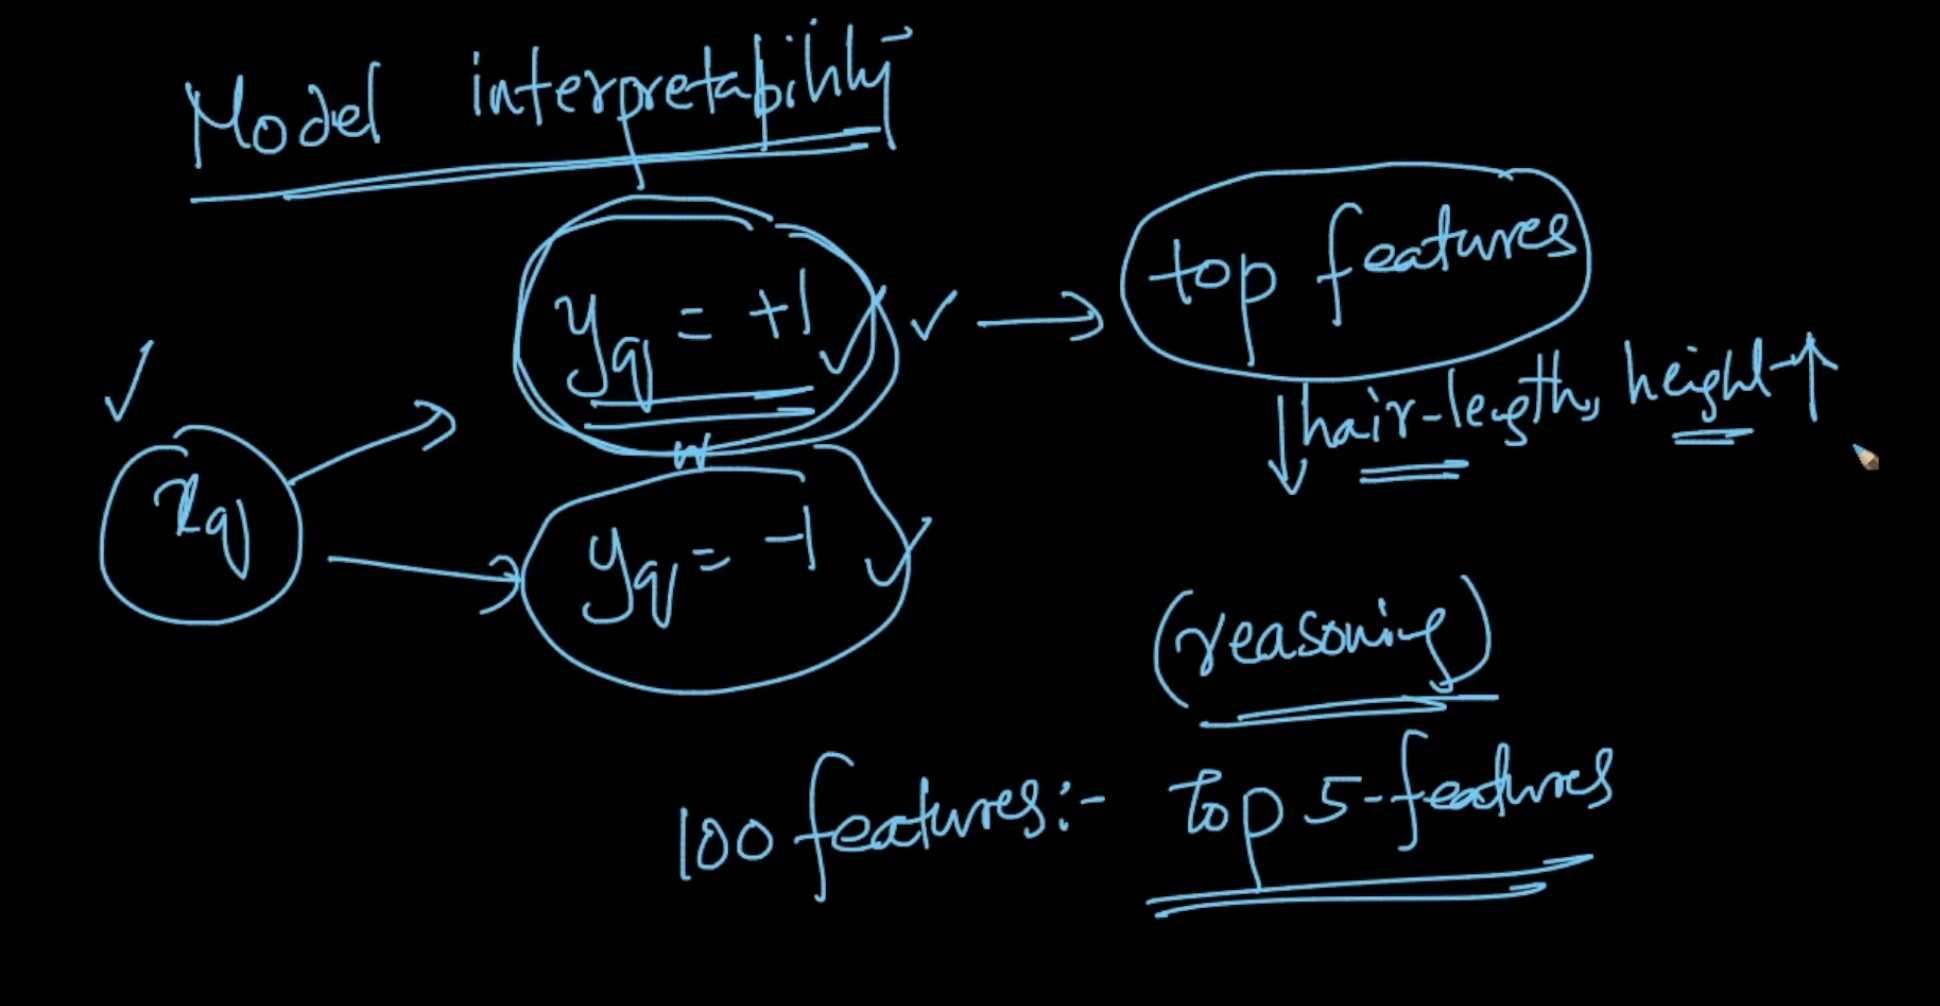 Model interpretability
top features
y_q = +1
hair-length, height
x_q
y_q = -1
(reasoning)
100 features:- top 5-features